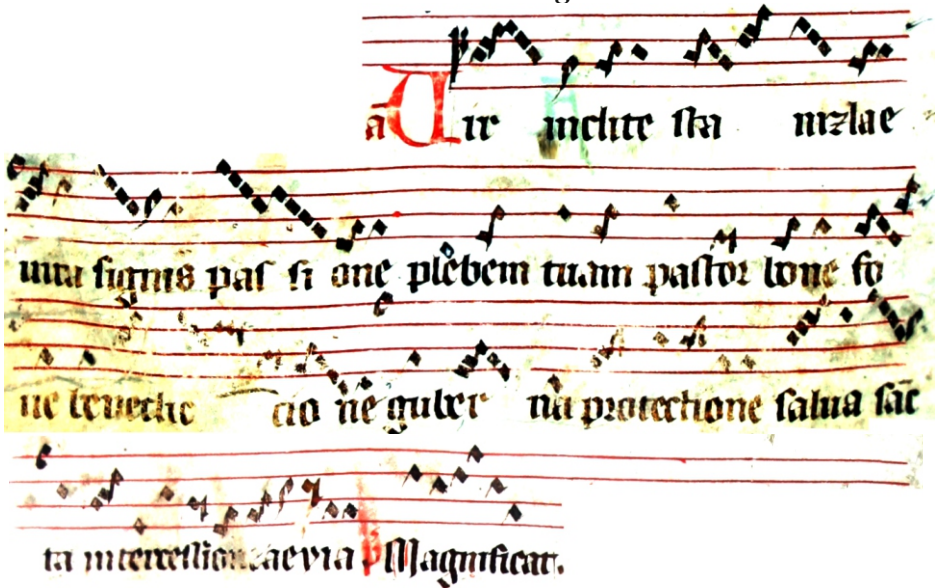 a Vir inclite sta nizlae
uita signis pas si one plebem tuam pastor bone fo
ue benedic cio ne guber na protectione salua sāc
ta intercessione aevia p Magnificat.